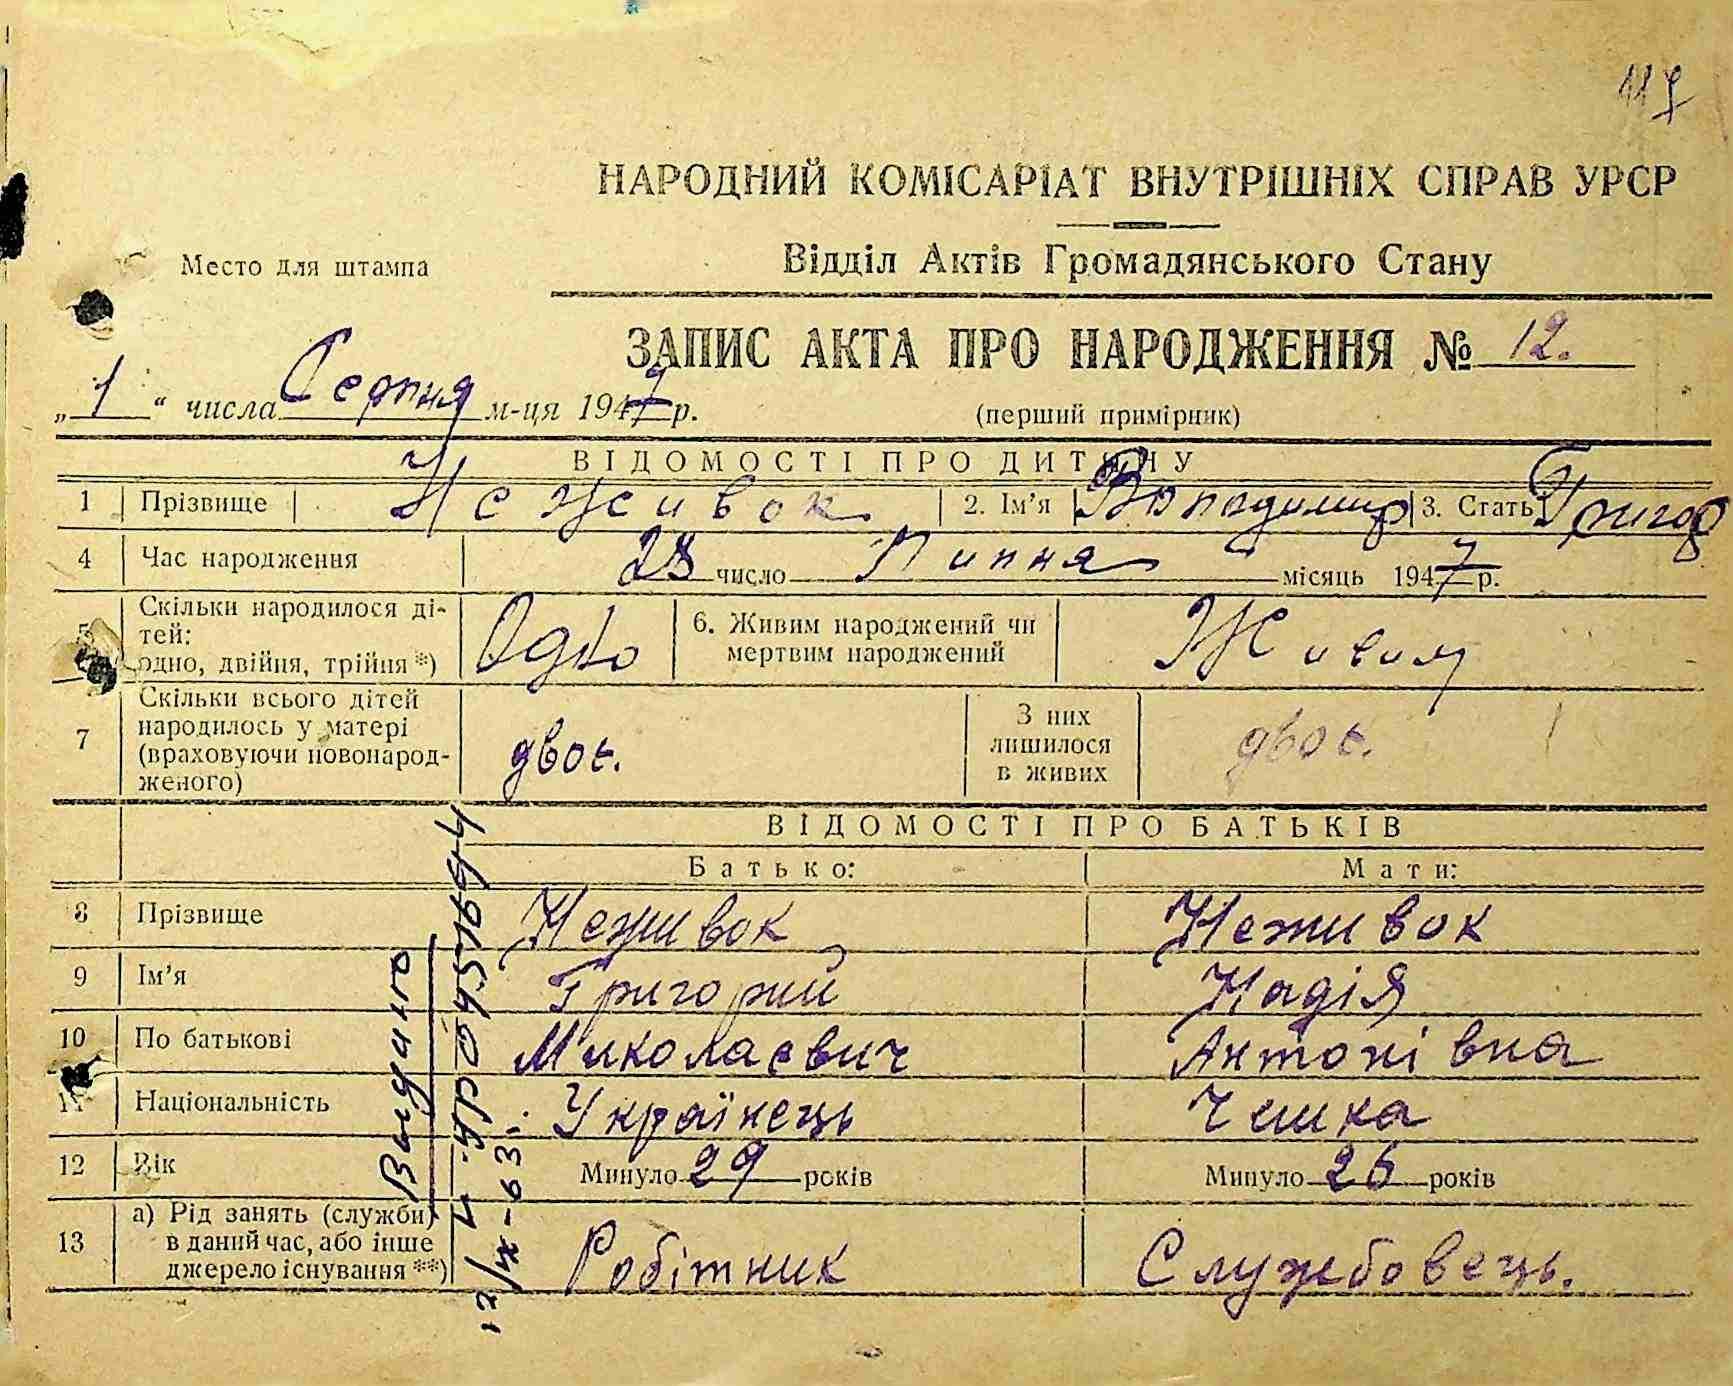 117
НАРОДНИЙ КОМІСАРІАТ ВНУТРІШНІХ СПРАВ УРСР
Место для штампа
Відділ Актів Громадянського Стану
ЗАПИС АКТА ПРО НАРОДЖЕННЯ № 12.
„1“ числа Серпня м-ця 1947 р.
(перший примірник)
ВІДОМОСТІ ПРО ДИТИНУ
1 Прізвище Неживок 2. Ім’я Володимир 3. Стать Григор
4 Час народження 28 число Липня місяць 1947 р.
5 Скільки народилося ді-
тей:
одно, двійня, трійня *) Одно 6. Живим народжений чи
мертвим народжений Живим
7 Скільки всього дітей
народилось у матері
(враховуючи новонарод-
женого) двоє. З них
лишилося
в живих двоє.
ВІДОМОСТІ ПРО БАТЬКІВ
Батько: Мати:
8 Прізвище Неживок Неживок
9 Ім’я Григорий Надія
10 По батькові Миколаєвич Антонівна
11 Національність Українець Чешка
12 Вік Минуло 29 років Минуло 26 років
13 а) Рід занять (служби)
в даний час, або інше
джерело існування **) Робітник Службовець.
Видано